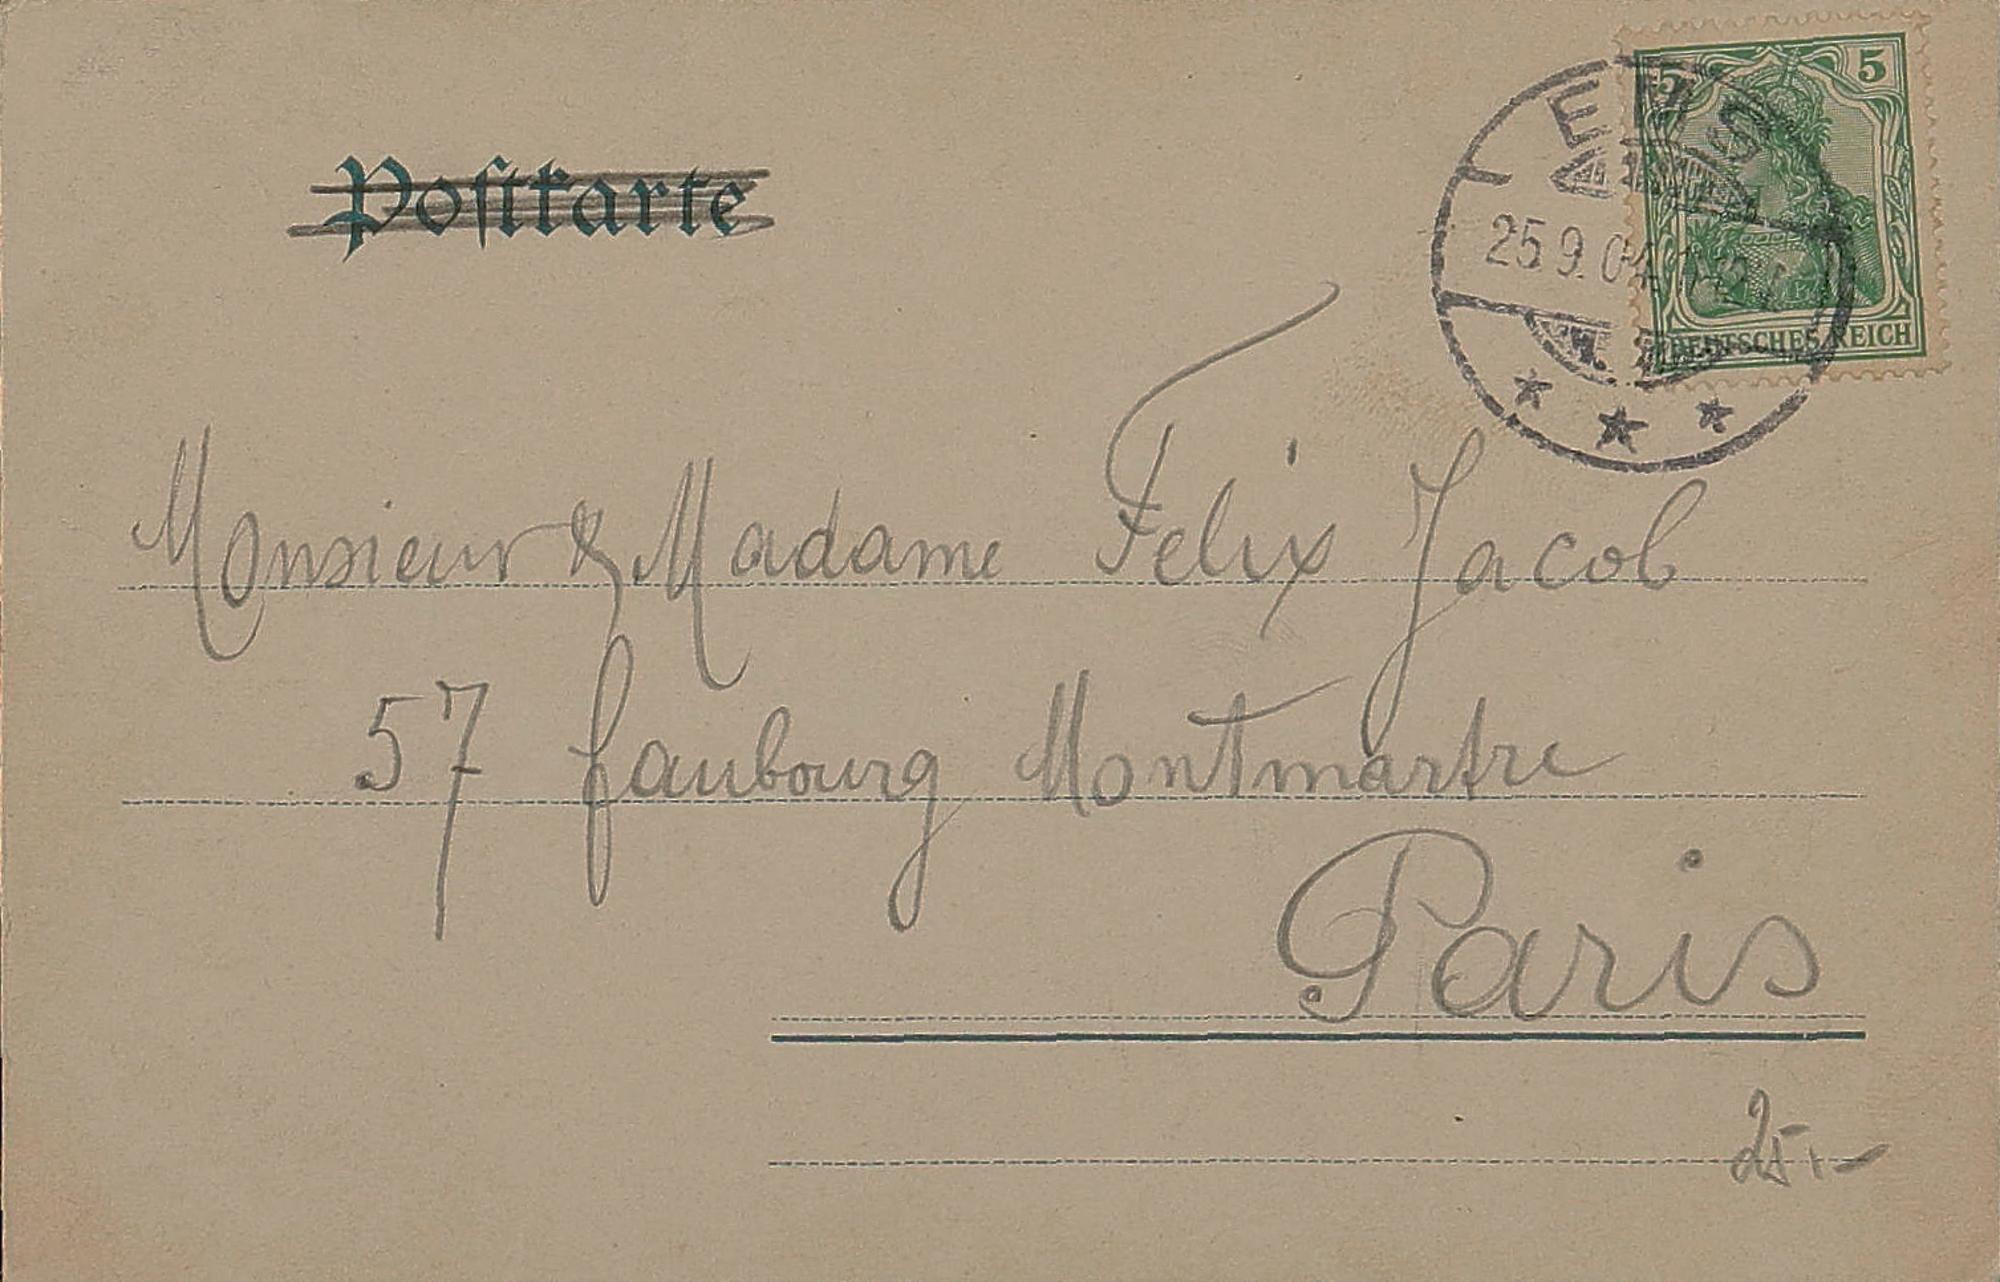 Postkarte
5 5
DEUTSCHES REICH
EMS
25.9.04.
Monsieur & Madame Felix Jacob
57 faubourg Montmartre
Paris
25.-